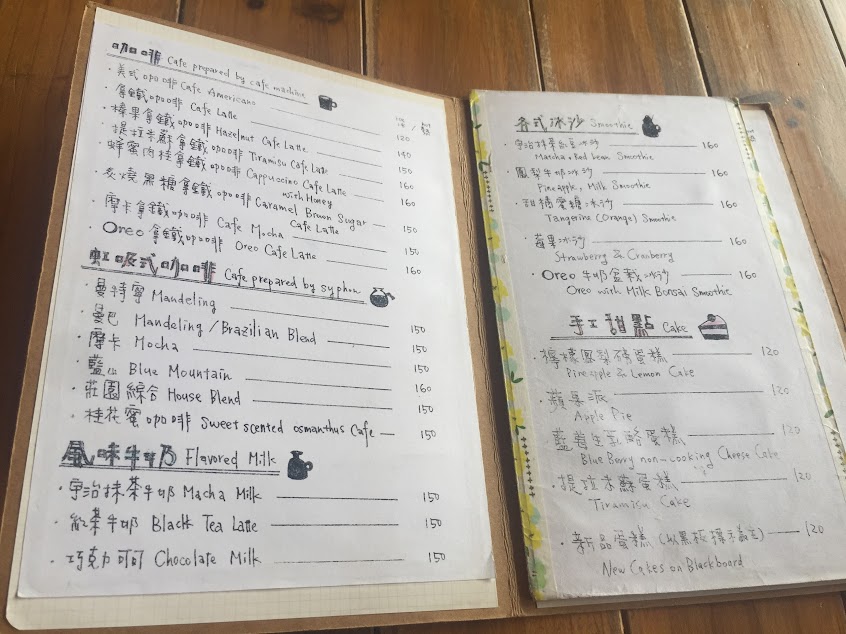 咖啡 Cafe prepared by cafe machine
冰 / 熱
・美式咖啡 Cafe Americano 120
・拿鐵咖啡 Cafe Latte 140
・榛果拿鐵咖啡 Hazelnut Cafe Latte 150
・提拉米蘇拿鐵咖啡 Tiramisu Cafe Latte 160
・蜂蜜肉桂拿鐵咖啡 Cappuccino Cafe Latte 160
with Honey
・炙燒黑糖拿鐵咖啡 Caramel Brown Sugar 150
Cafe Latte
・摩卡拿鐵咖啡 Cafe Mocha 150
・Oreo拿鐵咖啡 Oreo Cafe Latte 160
虹吸式咖啡 Cafe prepared by syphon
・曼特寧 Mandeling 150
・曼巴 Mandeling / Brazilian Blend 150
・摩卡 Mocha 150
・藍山 Blue Mountain 160
・莊園綜合 House Blend 150
・桂花蜜咖啡 Sweet scented osmanthus Cafe 150
風味牛奶 Flavored Milk
・宇治抹茶牛奶 Macha Milk 150
・紅茶牛奶 Black Tea Latte 150
・巧克力可可 Chocolate Milk 150
各式冰沙 Smoothie
・宇治抹茶紅豆冰沙 160
Matcha & Red bean Smoothie
・鳳梨牛奶冰沙 160
Pineapple, Milk Smoothie
・甜橘蜜糖冰沙 160
Tangerine (Orange) Smothie
・莓果冰沙 160
Strawberry & Cranberry
・Oreo 牛奶盆栽冰沙 160
Oreo with Milk Bonsai Smoothie
手工甜點 Cake
・檸檬鳳梨磅蛋糕 120
Pineapple & Lemon Cake
・蘋果派 120
Apple Pie
・藍莓生乳酪蛋糕 120
Blue Berry non-cooking Cheese Cake
・提拉米蘇蛋糕 120
Tiramisu Cake
・新品蛋糕 (以黑板標示為主) 120
New Cakes on Blackboard